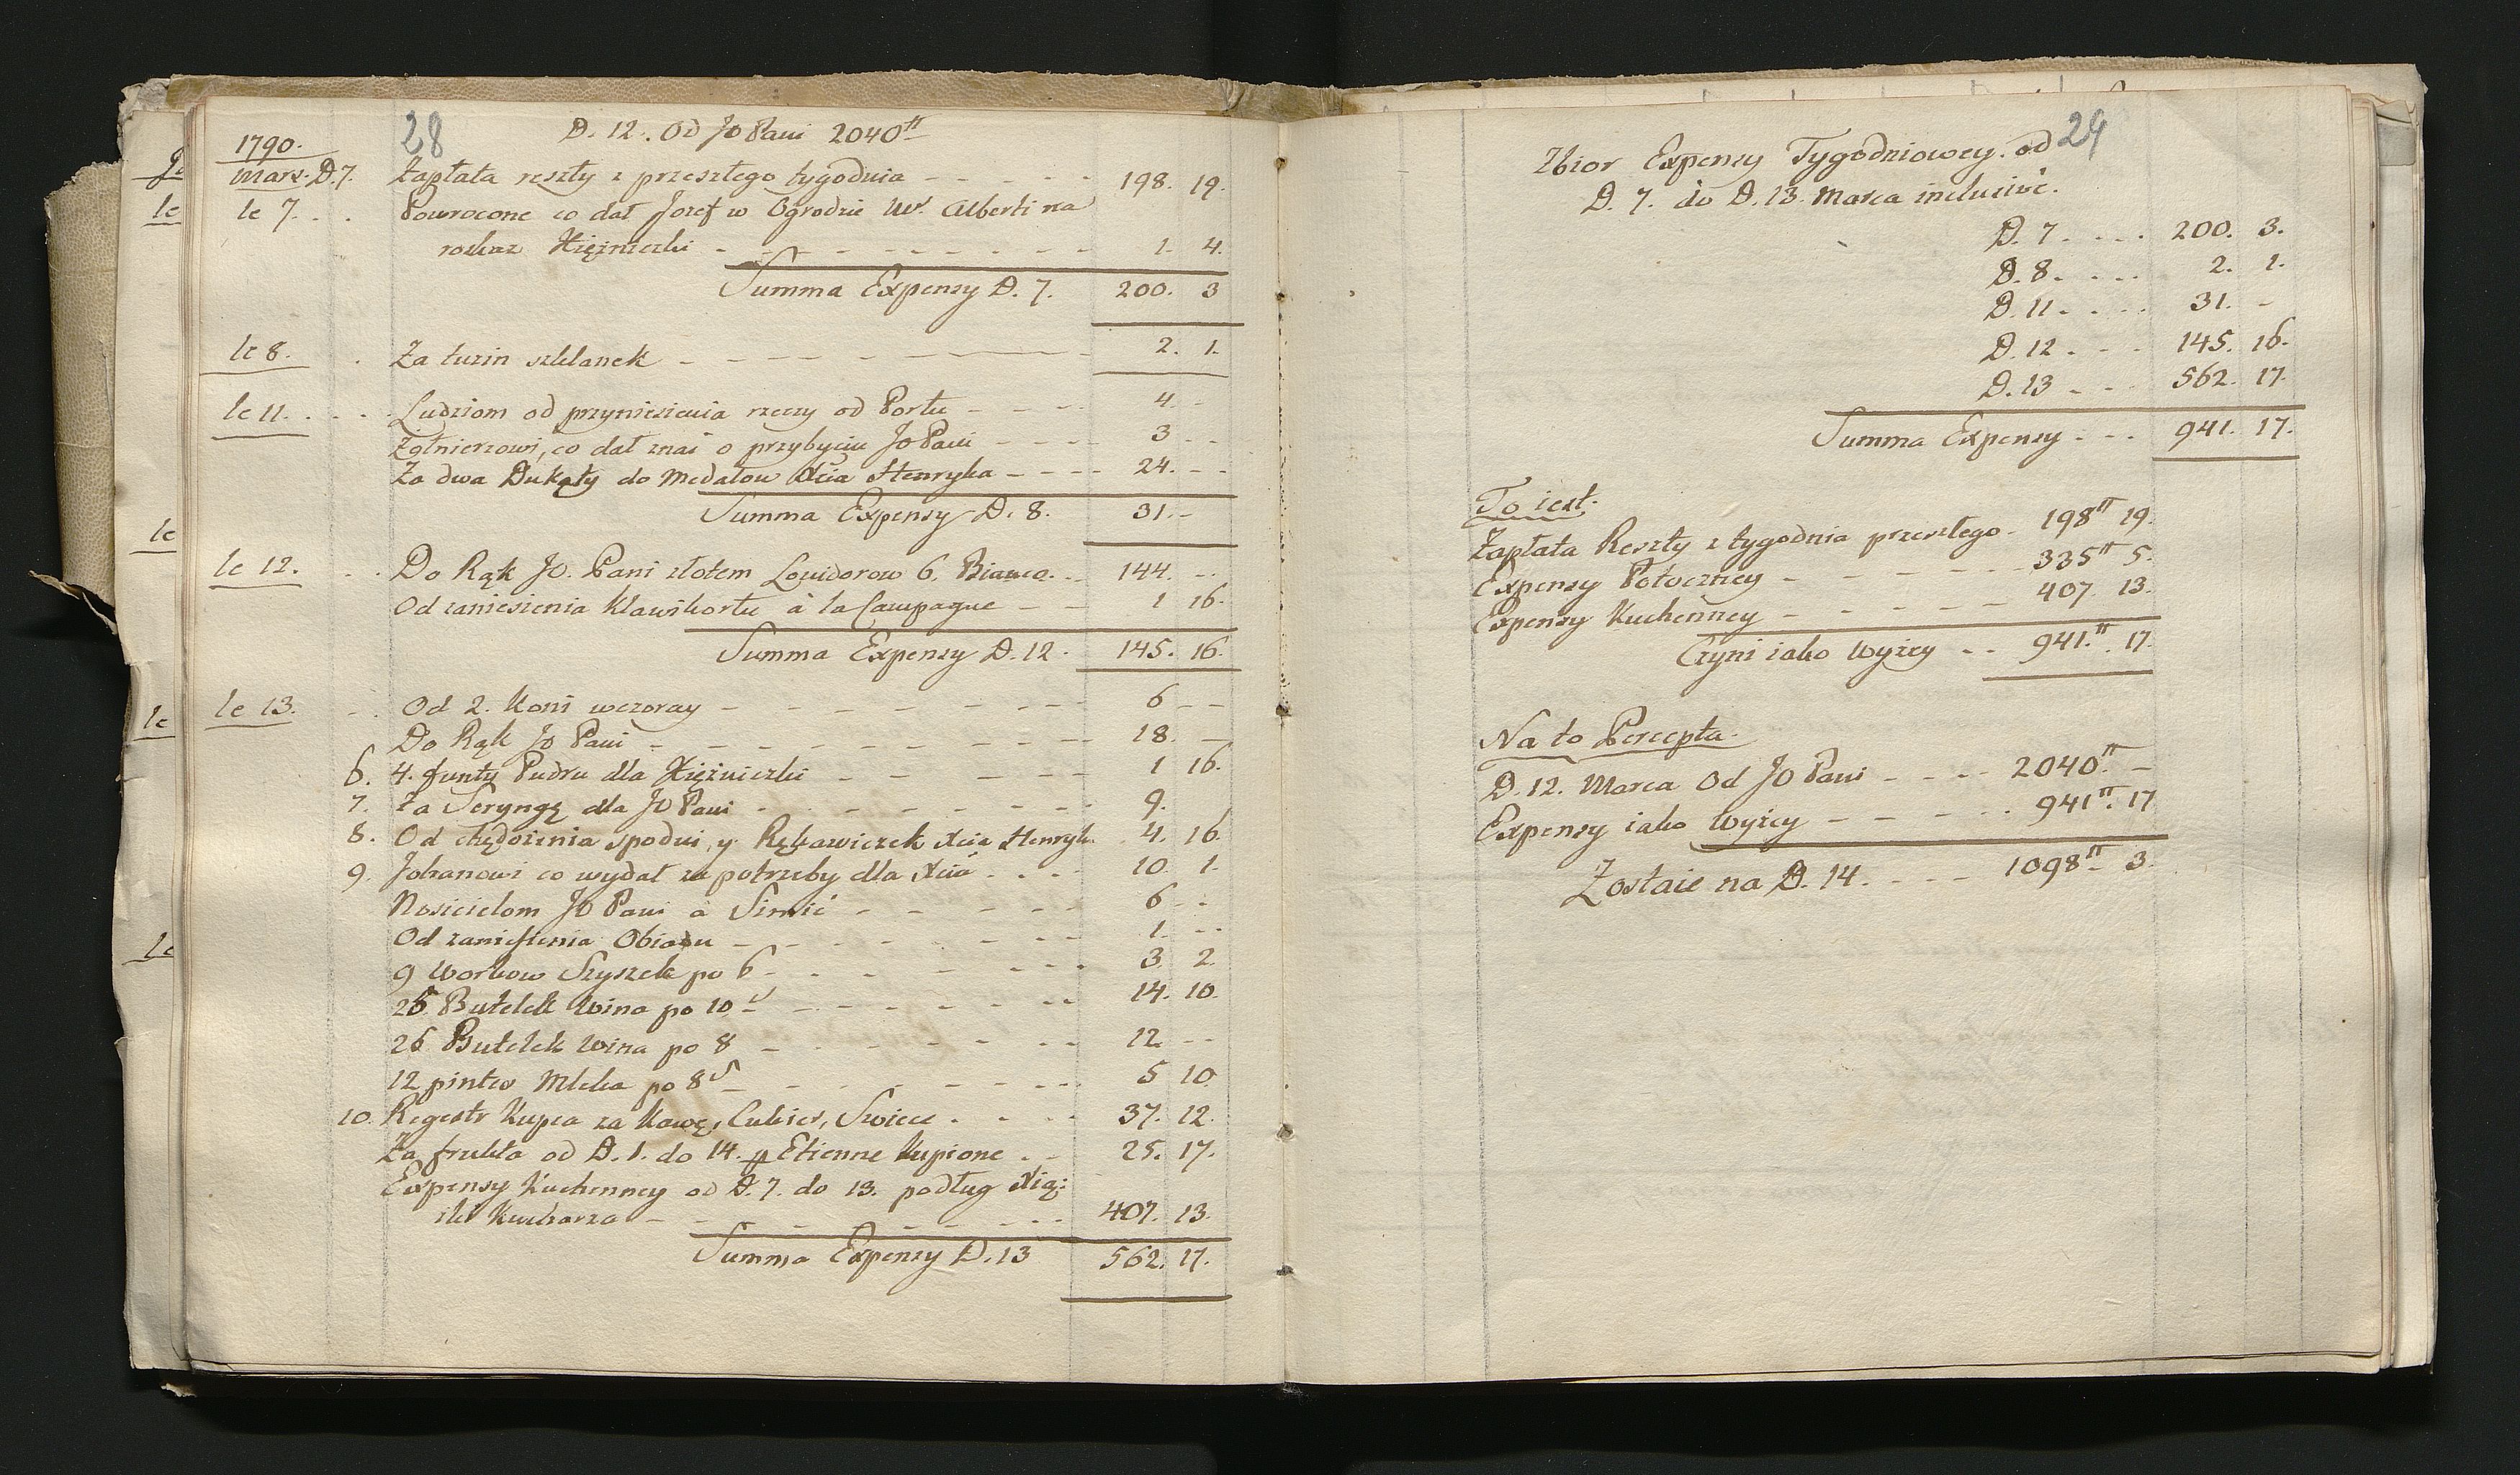 28
D. 12. Od JO Pani 2040 tt
1790.
Mars. D. 7. Zapłata reszty z przeszłego tygodnia - - - - - 198. 19.
le 7. . . Powrocone co dał Jozef w Ogrodzie Ur. Alberti na
rozkaz Xiężniczki - - - - - - - - 1. 4.
Summa Expensy D. 7. 200. 3
le 8. . Za tuzin szklanek - - - - - - - - 2. 1.
le 11. . . . . Ludziom od przyniesienia rzeczy od Portu - - - - 4. -
Zołnierzowi, co dał znać o przybyciu JO Pani - - - - 3 - -
Za dwa Dukaty do Medalow Xcia Henryka - - - - 24. - -
Summa Expensy D. 8. 31. -
le 12. . . Do Rąk JO. Pani złotem Louidorow 6. Bianco. - - 144. - -
Od zaniesienia Klawikortu à la Campagne - - 1 16.
Summa Expensy D. 12. 145. 16.
le 13. - . Od 2. Koni wczoray - - - - - - - - 6 - -
Do Rąk JO Pani - - - - - - - - - 18. -
6. 4. funty Pudru dla Xiężniczki - - - - - 1 16.
7. Za Seryngę dla JO Pani - - - - - - - - 9.
8. Od chędożenia spodni, y Rękawiczek Xcia Henryk. 4. 16.
9. Johanowi co wydał za potrzeby dla Xcia . . . - 10. 1.
Nosicielom JO Pani à - - - - - 6 - -
Od zaniesienia Obiadu - - - - - - - - 1. - -
9 Workow Szyszek po 6 - . - - - - - 3. 2.
26 Butelek Wina po 10 s - - - - - - - 14. 10.
26 Butelek Wina po 8 - - - - - - - 12. - -
12 pintes Mleka po 8 s - - - - - - - - 5 10.
10. Regestr Kupca za Kawę, Cukier, Swiece . - - - 37. 12.
Za frukta od D. 1. do 14. p Etienne Kupione . - 25. 17.
Expensy Kuchenney od D. 7. do 13. podług Xią:
żki Kucharza - - - - - - - - - 407. 13.
Summa Expensy D. 13 562. 17.
29
Zbior Expensy Tygodniowey. od
D. 7. do D. 13. Marca inclusivè.
D. 7. . . . 200. 3.
D. 8. . . . 2. 1.
D. 11. . . . 31. -
D. 12. . - - 145. 16.
D. 13 - - - 562. 17.
Summa Expensy . - - 941. 17.
To iest.
Zapłata Reszty z tygodnia przeszłego - 198 tt 19.
Expensy Potoczney - - - - - - 335 tt 5.
Expensy Kuchenney - - - - - 407. 13.
Czyni iako wyżey - - 941. tt 17.
Na to Percepta.
D. 12. Marca Od JO Pani - - - - 2040 tt. -
Expensy iako wyżey - - - - . 941 tt. 17
Zostaie na D. 14. - - - 1098 tt. 3.